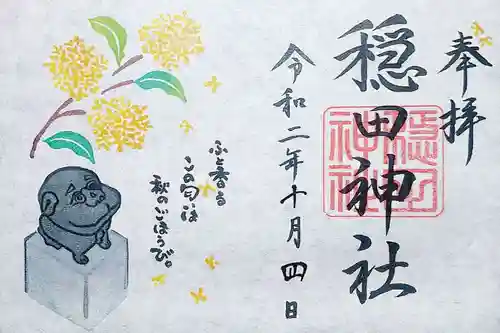 奉拝
穏田神社
穏田
神社
令和二年十月四日
ふと香る
この匂いは
秋のごほうび。